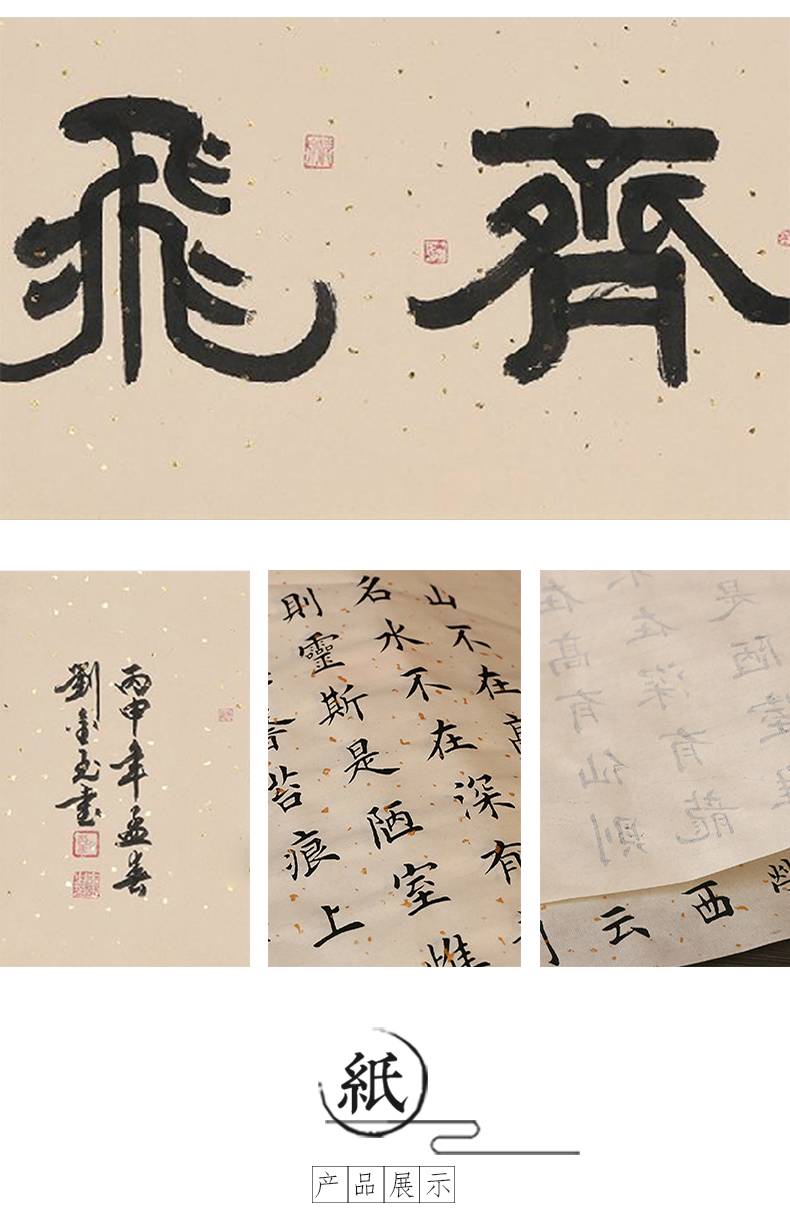 齊飛
丙申年孟春
劉金玉書
山不在高
名水不在深有
則靈斯是陋室惟
苔痕上
在高有仙則
在深有龍
是陋室
西
云
紙
产品展示